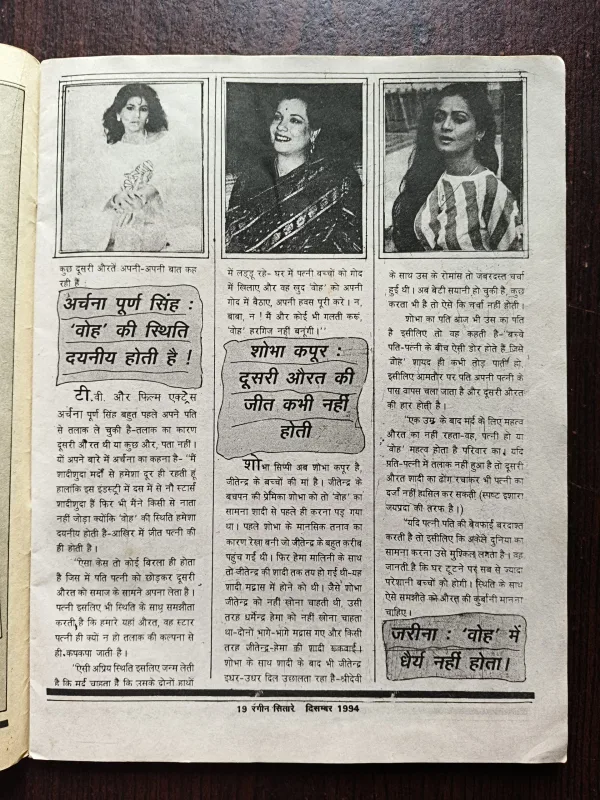 कुछ दूसरी औरतें अपनी-अपनी बात कह
रही हैं
अर्चना पूर्ण सिंह :
'वोह' की स्थिति
दयनीय होती है !
टी.वी. और फिल्म एक्ट्रेस
अर्चना पूर्ण सिंह बहुत पहले अपने पति
से तलाक ले चुकी है-तलाक का कारण
दूसरी औरत थी या कुछ और, पता नहीं।
यों अपने बारे में अर्चना का कहना है- ''मैं
शादीशुदा मर्दों से हमेशा दूर ही रहती हूं
हालांकि इस इंडस्ट्री में दस में से नौ स्टार्स
शादीशुदा हैं फिर भी मैंने किसी से नाता
नहीं जोड़ा क्योंकि 'वोह' की स्थिति हमेशा
दयनीय होती है-आखिर में जीत पत्नी की
ही होती है।
''ऐसा केस तो कोई बिरला ही होता
है जिस में पति पत्नी को छोड़कर दूसरी
औरत को समाज के सामने अपना लेता है।
पत्नी इसलिए भी स्थिति के साथ समझौता
करती है कि हमारे यहां औरत, वह स्टार
पत्नी ही क्यों न हो तलाक की कल्पना से
ही कंपकपा जाती है।
''ऐसी अप्रिय स्थिति इसलिए जन्म लेती
है कि मर्द चाहता है कि उसके दोनों हाथों
में लड्डू रहे- घर में पत्नी बच्चों को गोद
में खिलाए और वह खुद 'वोह' को अपनी
गोद में बैठाए, अपनी हवस पूरी करे। न,
बाबा, न ! मैं और कोई भी गलती करूं,
'वोह' हरगिज नहीं बनूंगी।''
शोभा कपूर :
दूसरी औरत की
जीत कभी नहीं
होती
शोभा सिप्पी अब शोभा कपूर है,
जीतेन्द्र के बच्चों की मां है। जीतेन्द्र के
बचपन की प्रेमिका शोभा को तो 'वोह' का
सामना शादी से पहले ही करना पड़ गया
था। पहले शोभा के मानसिक तनाव का
कारण रेखा बनी जो जीतेन्द्र के बहुत करीब
पहुंच गई थी। फिर हेमा मालिनी के साथ
तो जीतेन्द्र की शादी तक तय हो गई थी-यह
शादी मद्रास में होने को थी। जैसे शोभा
जीतेन्द्र को नहीं खोना चाहती थी, उसी
तरह धर्मेन्द्र हेमा को नहीं खोना चाहता
था-दोनों भागे-भागे मद्रास गए और किसी
तरह जीतेन्द्र-हेमा की शादी रुकवाई।
शोभा के साथ शादी के बाद भी जीतेन्द्र
इधर-उधर दिल उछालता रहा है-श्रीदेवी
के साथ उस के रोमांस तो जबरदस्त चर्चा
हुई थी। अब बेटी सयानी हो चुकी है, कुछ
करता भी है तो ऐसे कि चर्चा नहीं होती।
शोभा का पति आज भी उस का पति
है इसीलिए तो वह कहती है-''बच्चे
पति-पत्नी के बीच ऐसी डोर होते हैं जिसे
'वोह' शायद ही कभी तोड़ पाती हो,
इसीलिए आमतौर पर पति अपनी पत्नी के
पास वापस चला जाता है और दूसरी औरत
की हार होती है।
''एक उम्र के बाद मर्द के लिए महत्व
औरत का नहीं रहता-वह, पत्नी हो या
'वोह' महत्व होता है परिवार का। यदि
पति-पत्नी में तलाक नहीं हुआ है तो दूसरी
औरत शादी का ढोंग रचाकर भी पत्नी का
दर्जा नहीं हासिल कर सकती (स्पष्ट इशारा
जयप्रदा की तरफ है।)
''यदि पत्नी पति की बेवफाई बरदाश्त
करती है तो इसीलिए कि अकेले दुनिया का
सामना करना उसे मुश्किल लगता है। वह
जानती है कि घर टूटने पर सब से ज्यादा
परेशानी बच्चों को होगी। स्थिति के साथ
ऐसे समझौते को औरत की कुर्बानी मानना
चाहिए।
जरीना : 'वोह' में
धैर्य नहीं होता।
19 रंगीन सितारे दिसम्बर 1994